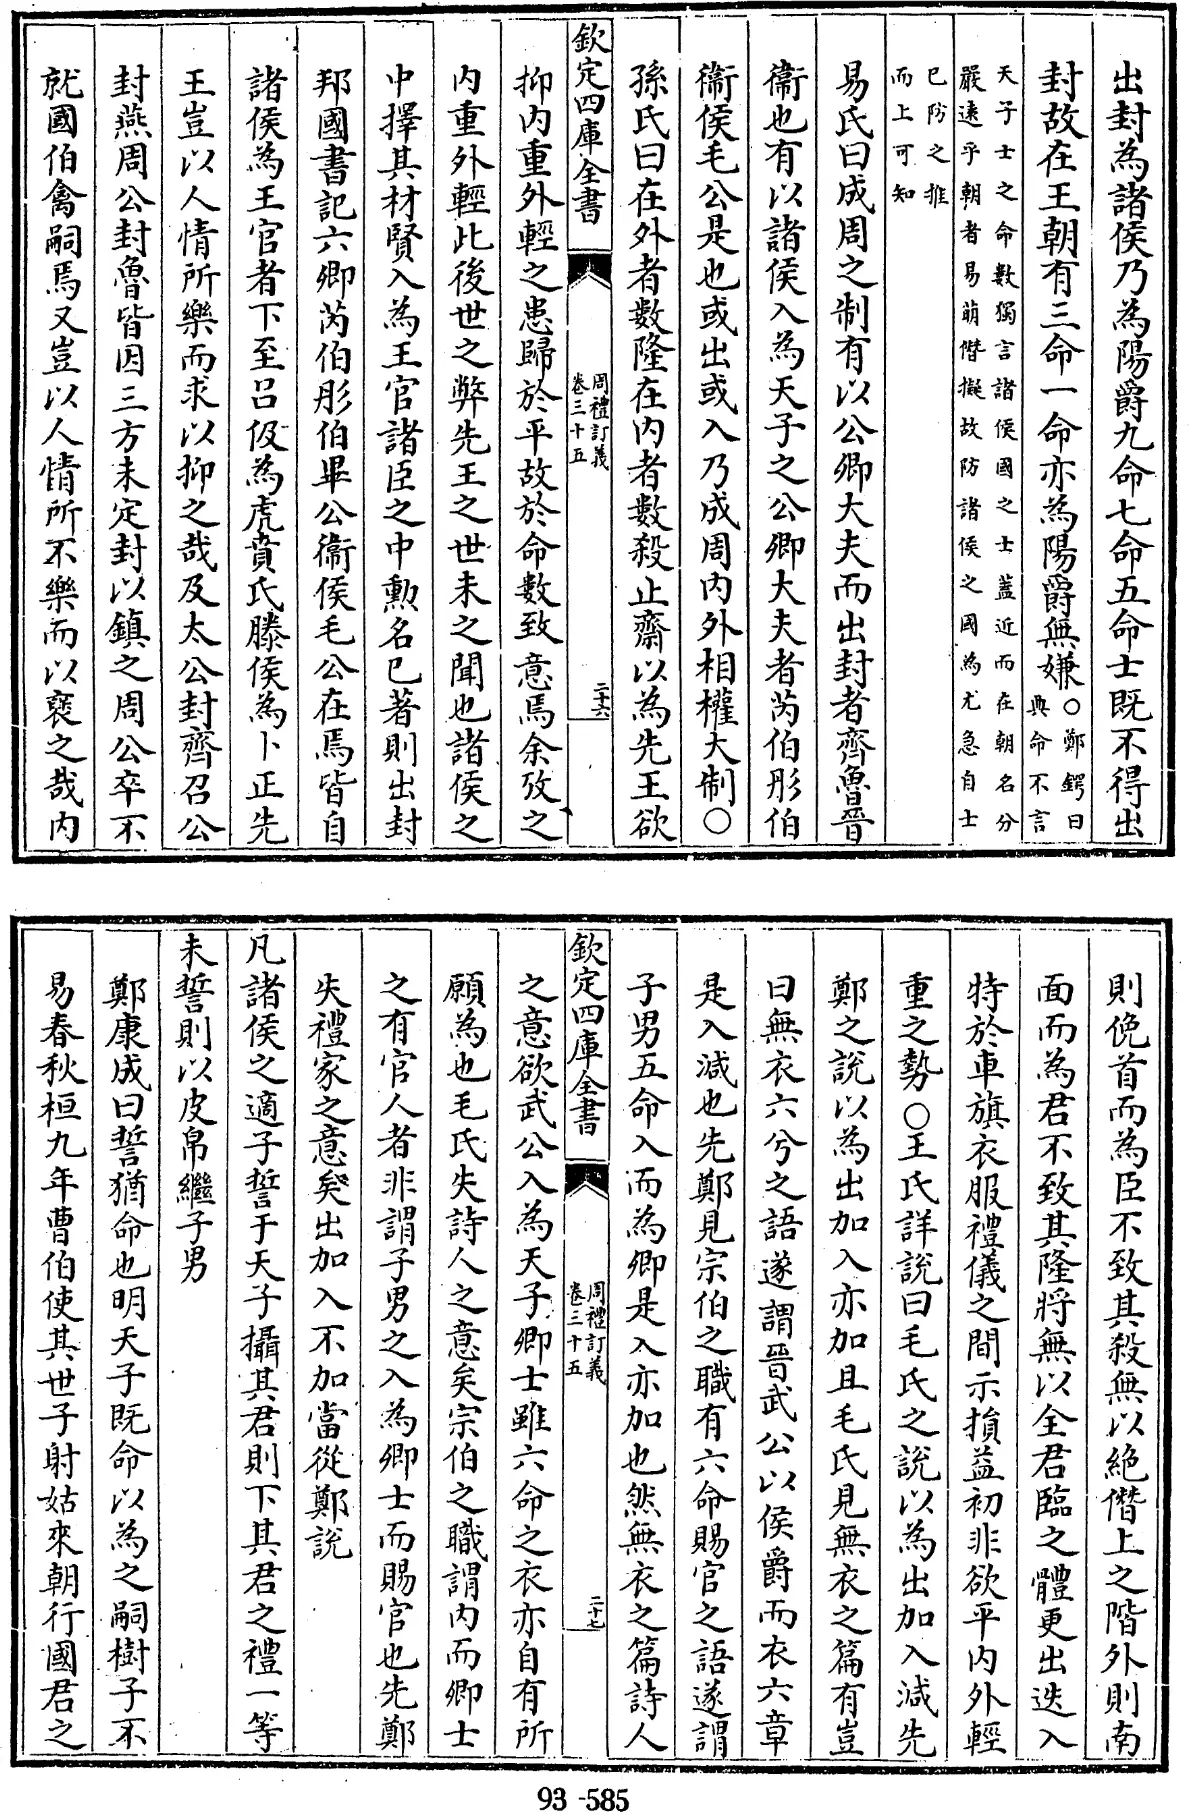 出封為諸侯乃為陽爵九命七命五命士既不得出
封故在王朝有三命一命亦為陽爵無嫌○鄭鍔曰
典命不言
天子士之命數獨言諸侯國之士蓋近而在朝名分
嚴遠乎朝者易萌僭擬故防諸侯之國為尤急自士
已防之推
而上可知
易氏曰成周之制有以公卿大夫而出封者齊魯晉
衞也有以諸侯入為天子之公卿大夫者芮伯彤伯
衞侯毛公是也或出或入乃成周内外相權大制○
孫氏曰在外者數隆在内者數殺止齋以為先王欲
欽定四庫全書
周禮訂義
卷三十五
二十六
抑内重外輕之患歸於平故於命數致意焉余攷之
内重外輕此後世之弊先王之世未之聞也諸侯之
中擇其材賢入為王官諸臣之中勲名已著則出封
邦國書記六卿芮伯彤伯畢公衞侯毛公在焉皆自
諸侯為王官者下至呂伋為虎賁氏滕侯為卜正先
王豈以人情所樂而求以抑之哉及太公封齊召公
封燕周公封魯皆因三方未定封以鎮之周公卒不
就國伯禽嗣焉又豈以人情所不樂而以襃之哉内
則俛首而為臣不致其殺無以絶僭上之階外則南
面而為君不致其隆將無以全君臨之體更出迭入
特於車旗衣服禮儀之間示損益初非欲平内外輕
重之勢○王氏詳說曰毛氏之說以為出加入減先
鄭之說以為出加入亦加且毛氏見無衣之篇有豈
曰無衣六兮之語遂謂晉武公以侯爵而衣六章
是入減也先鄭見宗伯之職有六命賜官之語遂謂
子男五命入而為卿是入亦加也然無衣之篇詩人
欽定四庫全書
周禮訂義
卷三十五
二十七
之意欲武公入為天子卿士雖六命之衣亦自有所
願為也毛氏失詩人之意矣宗伯之職謂内而卿士
之有官人者非謂子男之入為卿士而賜官也先鄭
失禮家之意矣出加入不加當從鄭說
凡諸侯之適子誓于天子攝其君則下其君之禮一等
未誓則以皮帛繼子男
鄭康成曰誓猶命也明天子既命以為之嗣樹子不
易春秋桓九年曹伯使其世子射姑來朝行國君之
93-585